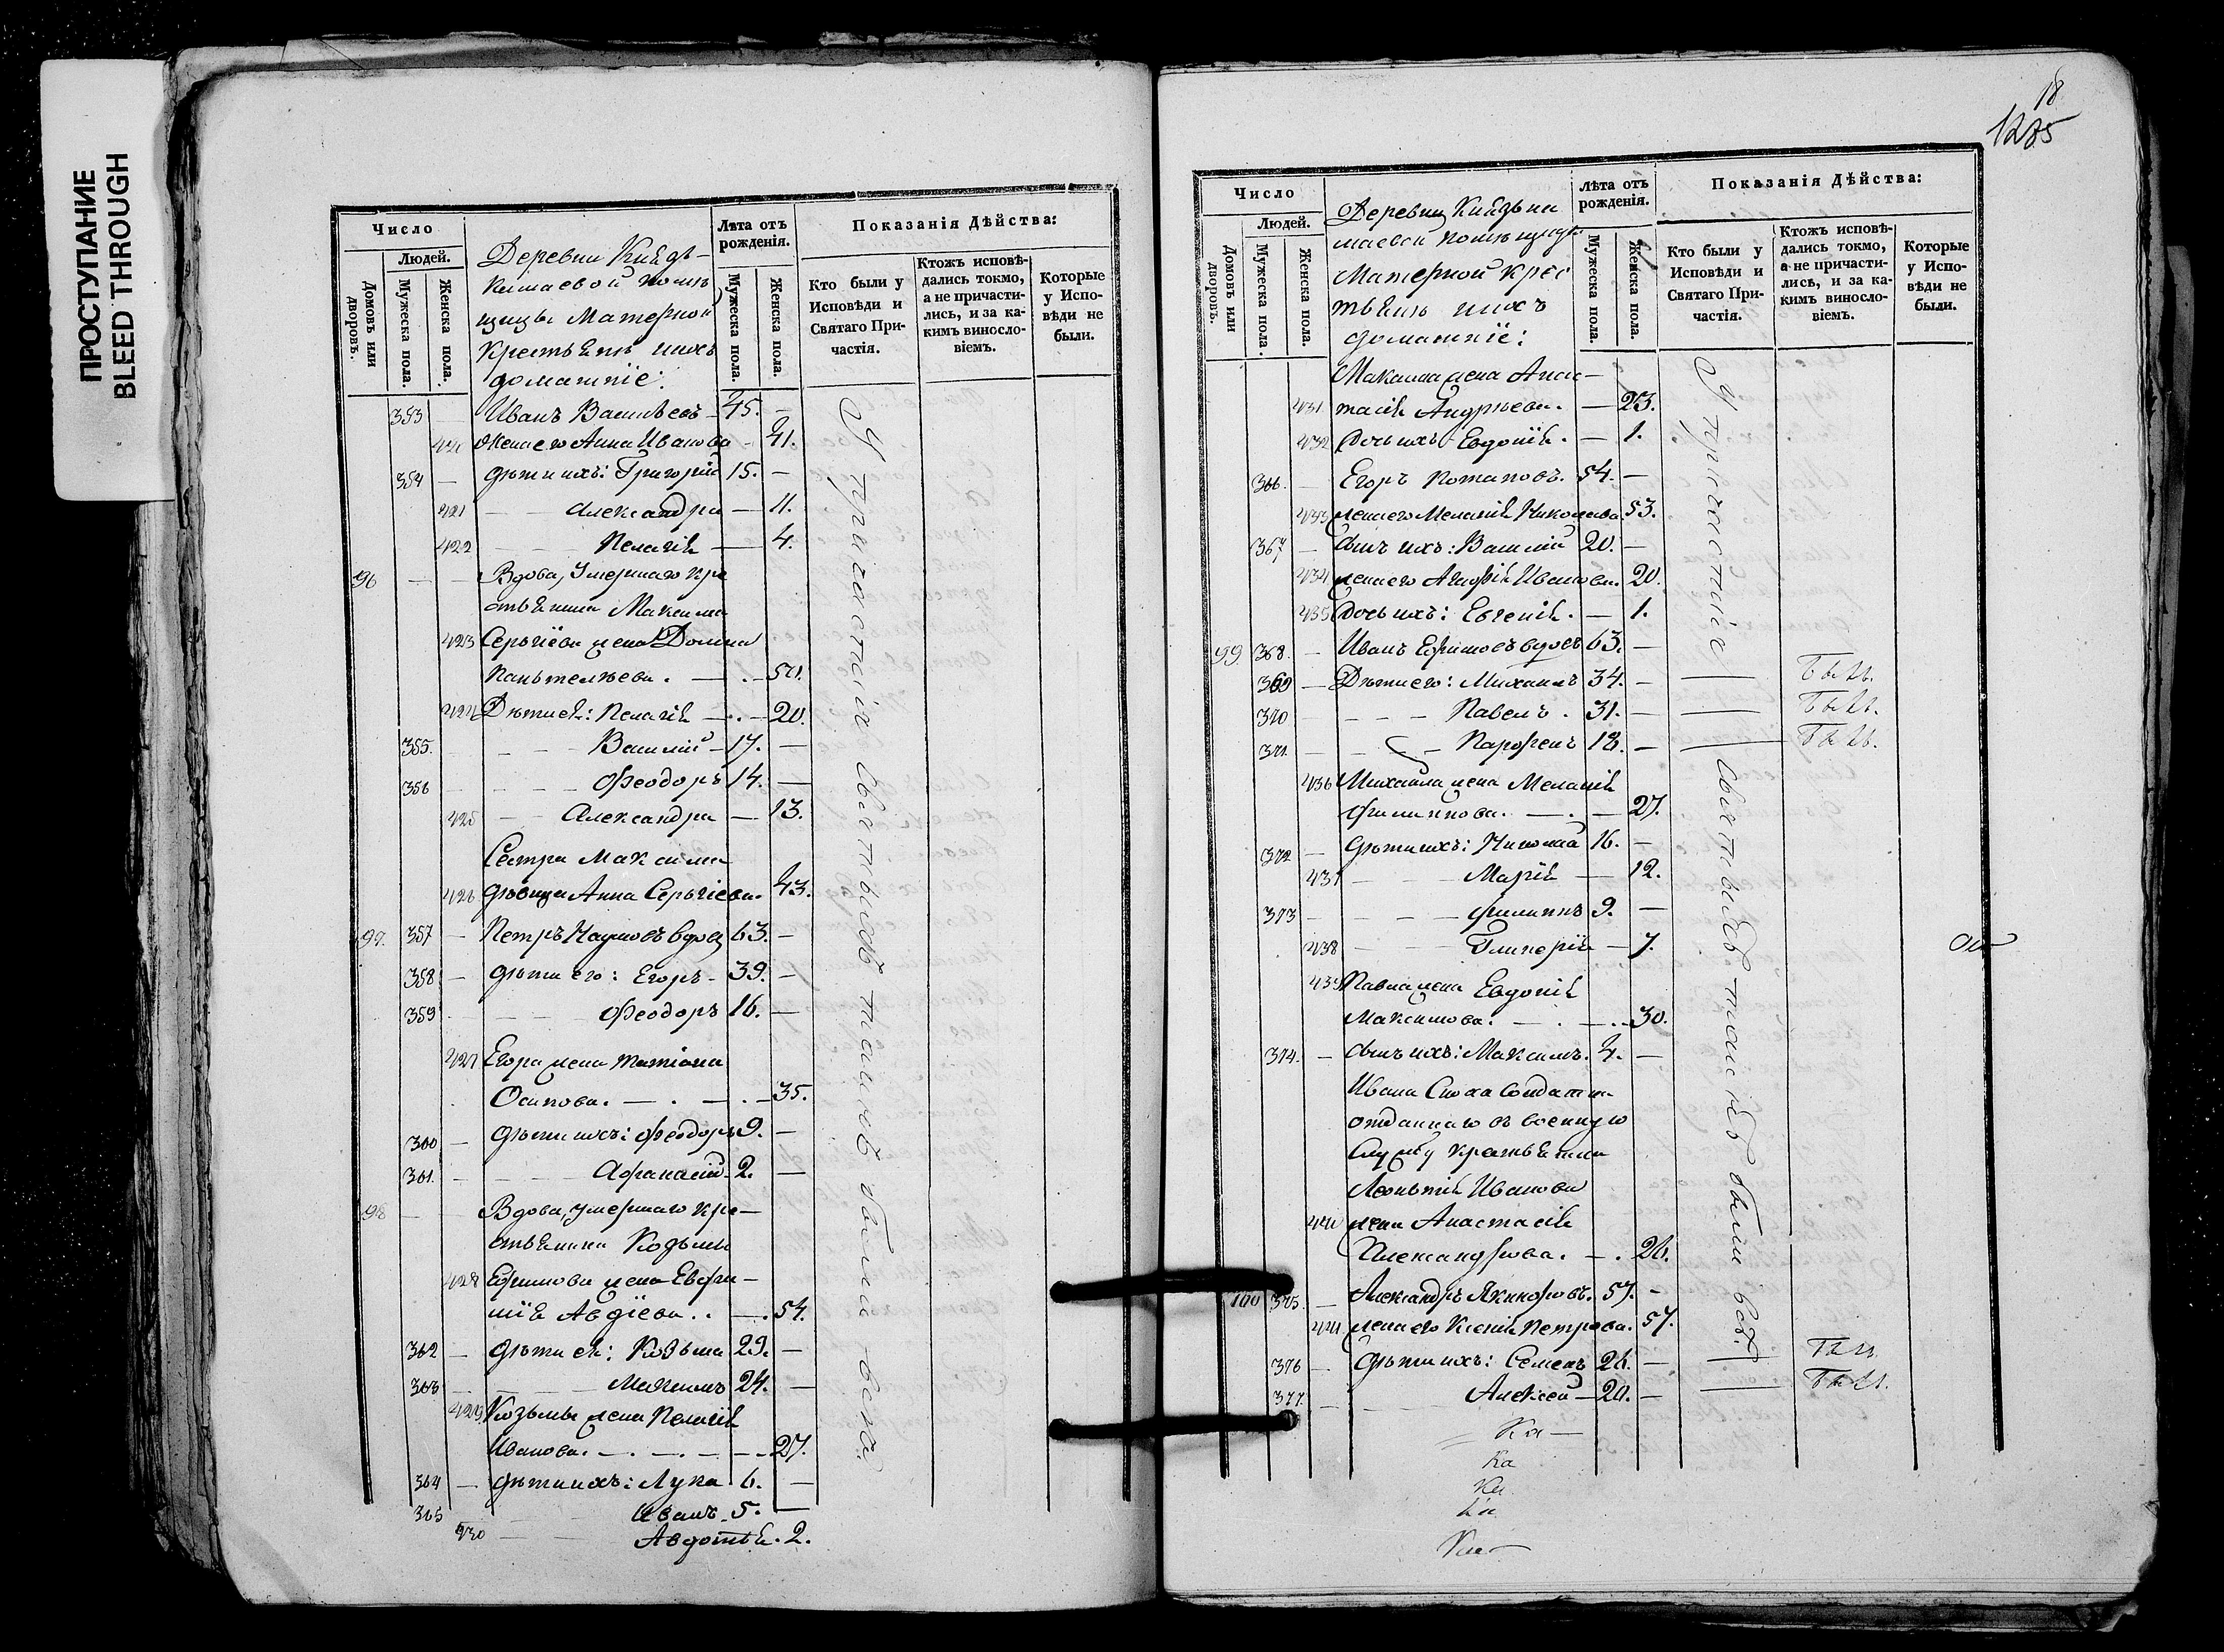 ПРОСТУПАНИЕ
BLEED THROUGH
Число
Людей.
Домовъ или дворовъ.
Мужеска пола.
Женска пола.
Деревни
помѣ
щицы Матерной
Крестьяне ихъ
домашніе:
Лѣта отъ рожденія.
Мужеска пола.
Женска пола.
Показанія Дѣйства:
Кто были у Исповѣди и Святаго Причастія.
Ктожъ исповѣдались токмо, а не причастились, и за какимъ винословіемъ.
Которые у Исповѣди не были.
353 — Иванъ Васильевъ — 45. —
420 Жена его Анна Иванова — 41.
354 — дѣти ихъ: Григорій 15. —
421 — — Александра — 11.
422 — — Пелагія — 4.
96 — — Вдова, Умершаго Кре
стьянина Максима
423 Сергіева жена Домна
Пантелѣева. — . — 50.
424 Дѣти ея: Пелагія — . — 20.
355. — — — Василій — 17. —
356 — — — Феодоръ 14. —
425 — — Александра — 13.
Сестра Максима
426 дѣвица Анна Сергіева. 43.
97. 357 — Петръ Наумовъ вдов. 63. —
358 — дѣти его: Егоръ — 39. —
359 — — Феодоръ 16. —
427 Егора жена Татіана
Осипова. — . — . — 35.
360 — дѣти ихъ: Феодоръ 9. —
361. — — — Афанасій 2. —
98 — — Вдова, умершаго Кре—
стьянина Козьмы
428 Ефимова жена Евфи—
мія Авдіева . . — . 54.
362 — дѣти ея: Козьма 29. —
363 — — — Максимъ 24. —
429 Козьмы жена Пелагія
Иванова. — . — . — 27.
364 — дѣти ихъ: Лука 6. —
365 Иванъ. 5. —
430 — — Авдотья. 2.
У причастія святыхъ таинъ были всѣ.
18
1285
Число
Людей.
Домовъ или дворовъ.
Мужеска пола.
Женска пола.
Деревни
помѣщицы
Матерной крес
тьяне ихъ
домашніе:
Лѣта отъ рожденія.
Мужеска пола.
Женска пола.
Показанія Дѣйства:
Кто были у Исповѣди и Святаго Причастія.
Ктожъ исповѣдались токмо, а не причастились, и за какимъ винословіемъ.
Которые у Исповѣди не были.
Максима жена Анас—
431 тасія Андреева. — 23.
432 Дочь ихъ Евдокія. — 1.
366. — Егоръ Потаповъ. 54. —
433 жена его Меланія Николаева 53.
367 — сынъ ихъ: Василій 20. —
434 жена его Агафія Иванова. 20.
435 Дочь ихъ: Евгенія. — 1.
99 368. — Иванъ Ефимовъ вдовъ 63. —
369 — Дѣти его: Михаилъ 34. — — Былъ.
370 — — — Павелъ . 31. — — Былъ.
371. — — Парфенъ 18. — — Былъ.
436 Михаила жена Меланія
Филиппова. — . — 27.
372 — дѣти ихъ: Николай 16. —
437 — — Марія — 12.
373 — — — Филиппъ 9. —
438 — — Гликерія — 7.
439 Павла жена Евдокія
Максимова. — . — . 30.
374. — сынъ ихъ: Максимъ. 4. —
Ивана Сноха Солдатка
отданнаго въ военную
Службу крестьянина
Леонтія Иванова
440 жена Анастасія
Александрова. — . 26.
100 375. — Александръ Якинфовъ. 57. —
441 жена его Ксенія Петрова. 57.
376 — дѣти ихъ: Семенъ 26. — — Былъ.
377. — — Алексей — 20. — — Былъ.
У причастія святыхъ таинъ были всѣ.